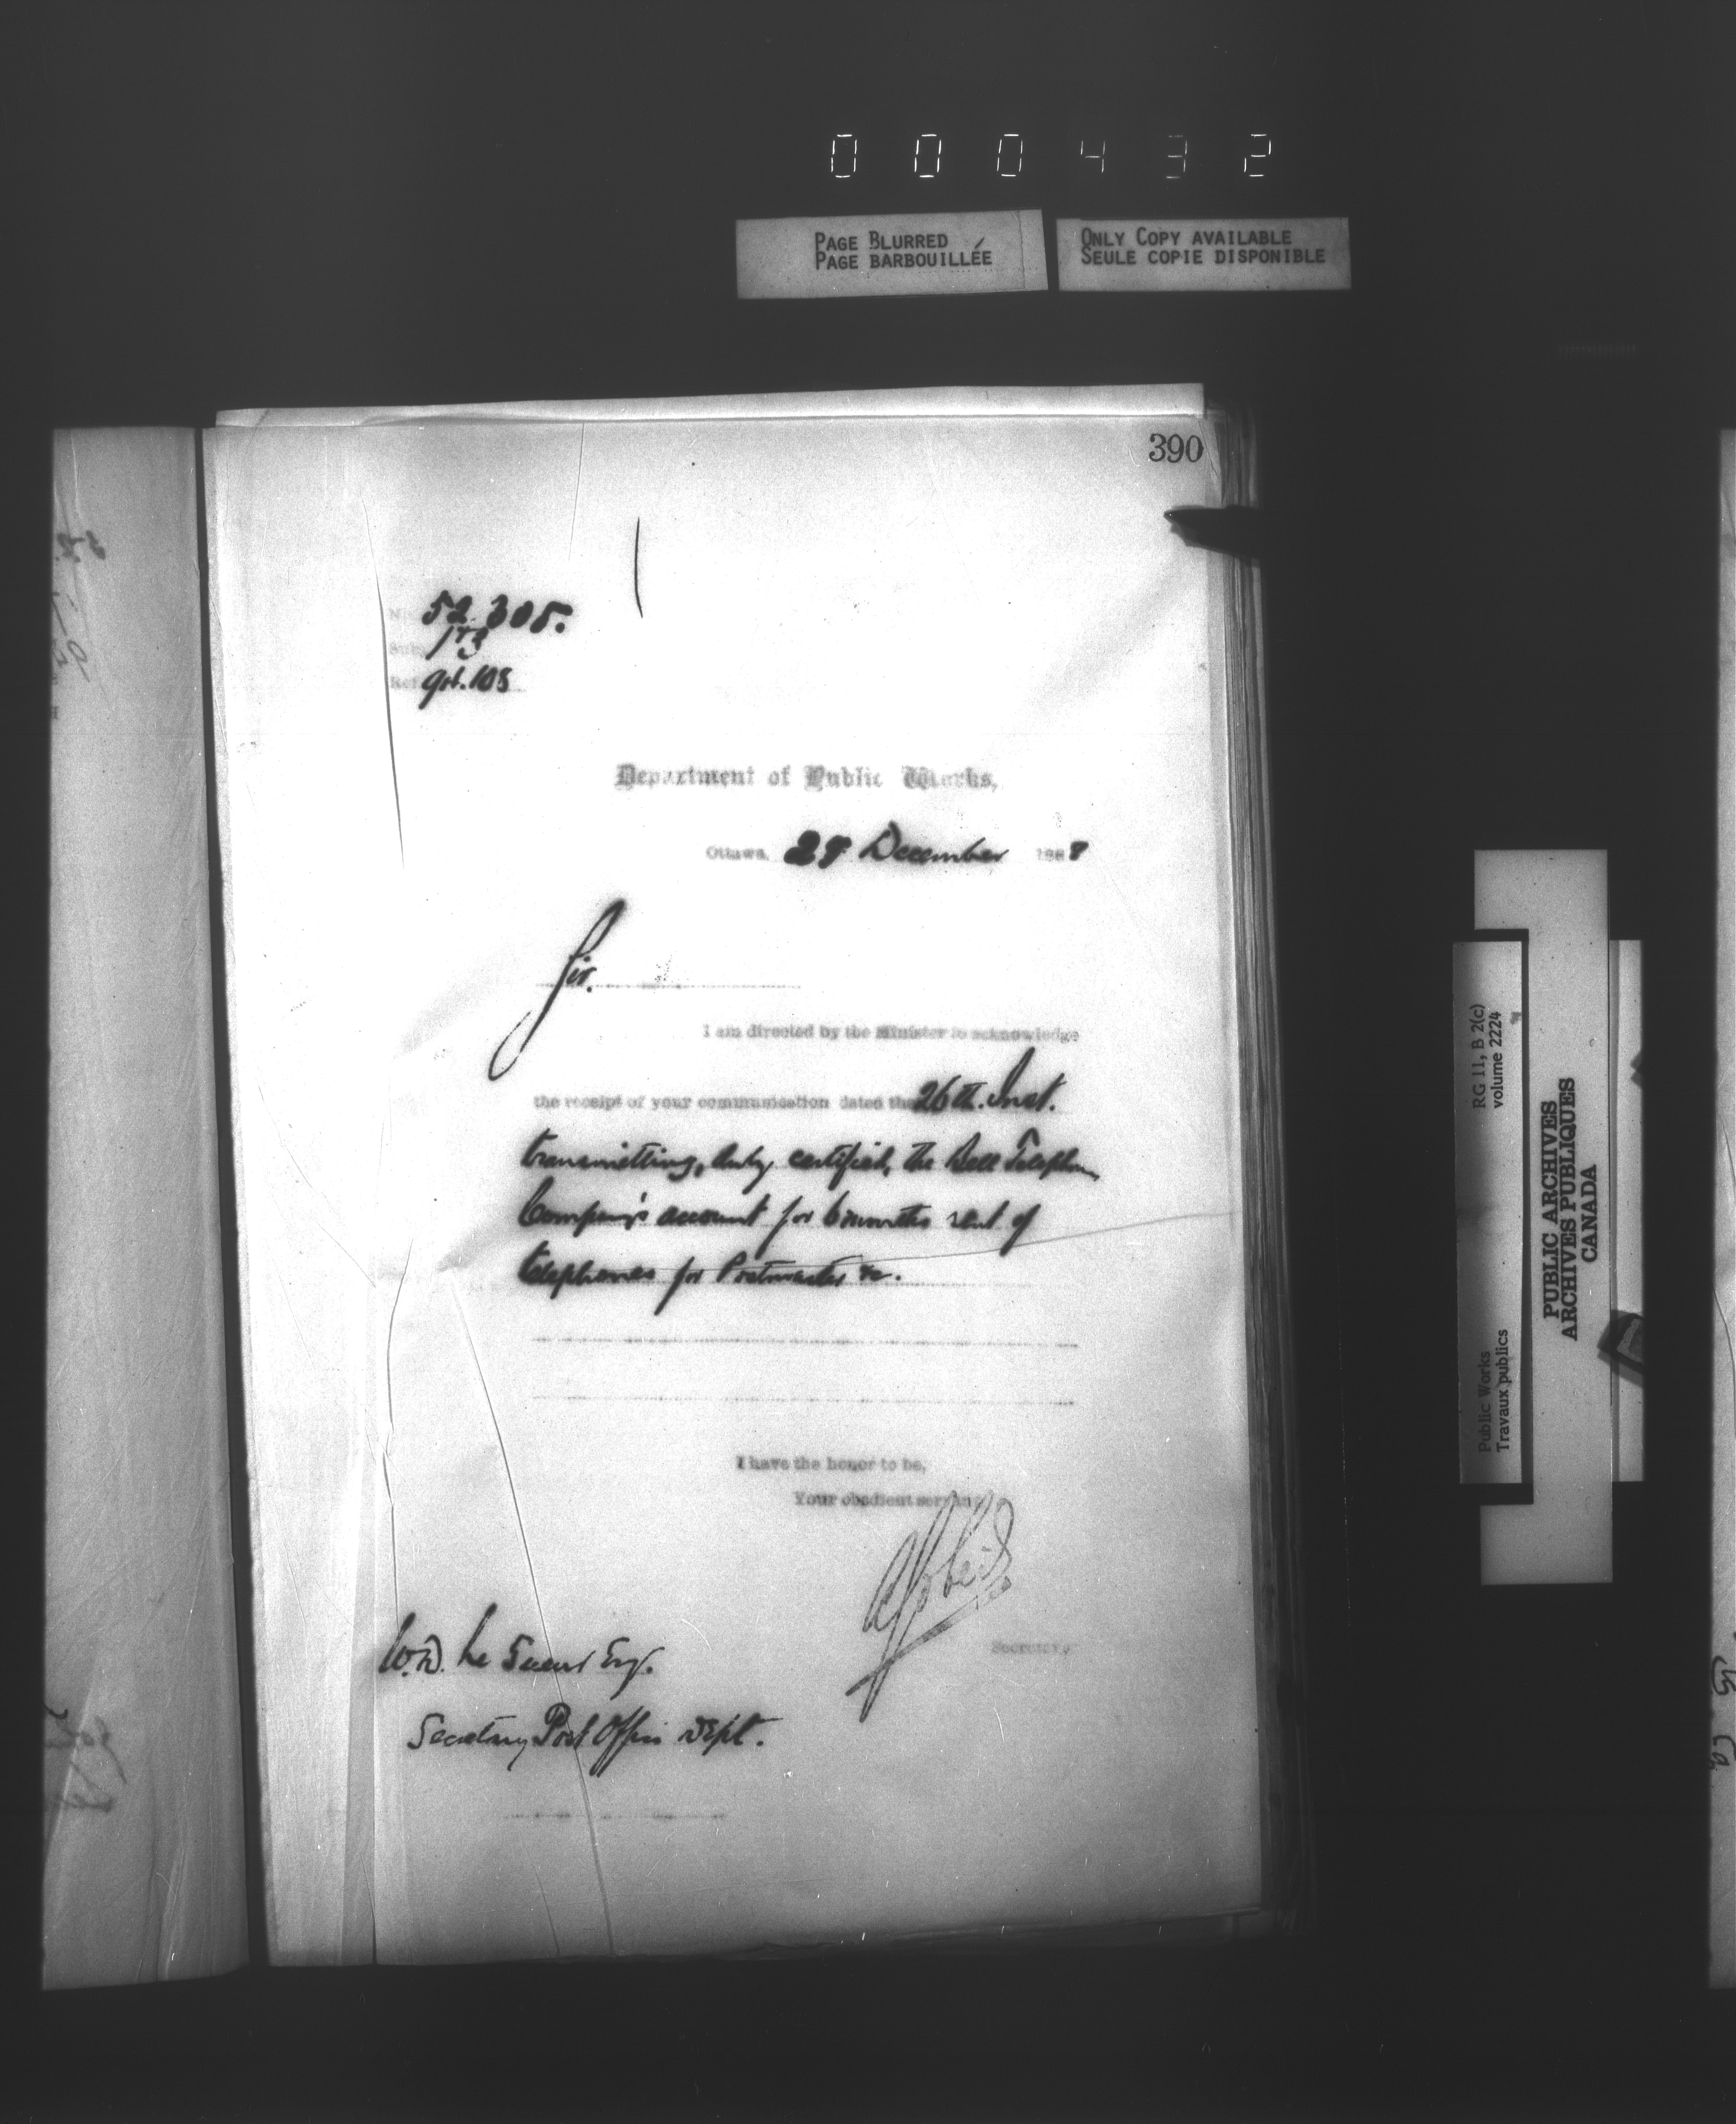 000432
PAGE BLURRED
PAGE BARBOUILLÉE
ONLY COPY AVAILABLE
SEULE COPIE DISPONIBLE
390
No 52.305.
Sub.
Ref. 108
Department of Public Works,
Ottawa, December 1888
Sir.
I am directed by the Minister to acknowledge
the receipt of your communication dated the 26th. Inst.
transmitting, duly certified, the Bell Telephone
Company's account for 6 months rent of
telephones for Postmaster &c.
I have the honor to be,
Your obedient servant,
A Gobeil
Secretary
W.D. Le Sueur Esq.
Secretary Post Office Dept.
RG 11, B 2(c)
volume 2224
Public Works
Travaux publics
PUBLIC ARCHIVES
ARCHIVES PUBLIQUES
CANADA